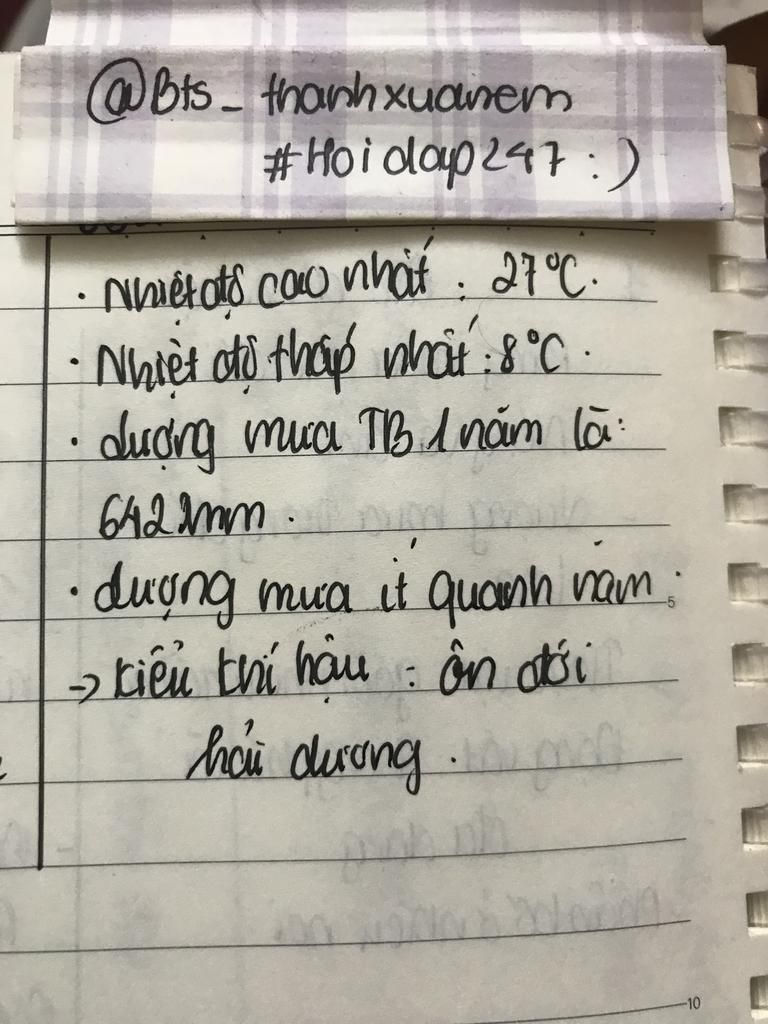 @Bts_thanhxuanem
#Hoidap247:)
. Nhiệt độ cao nhất : 27°C.
. Nhiệt độ thấp nhất : 8°C.
. dượng mưa TB 1 năm là:
642mm.
. dượng mưa ít quanh năm.
5
→ kiểu khí hậu : ôn đới
hải dương.
10